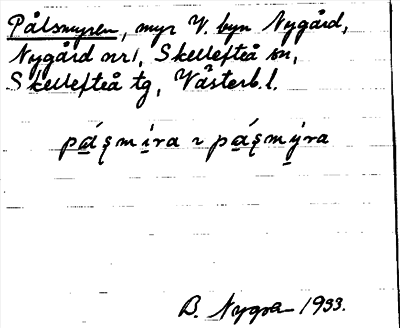 Pålsmyren, myr V. byn Nygård,
Nygård nr 1, Skellefteå sn,
Skellefteå tg, Västerb. l.
pa̲ʹʂmi̲ʹra ~ pa̲ʹʂmy̲ʹra
B. Nygren 1933.